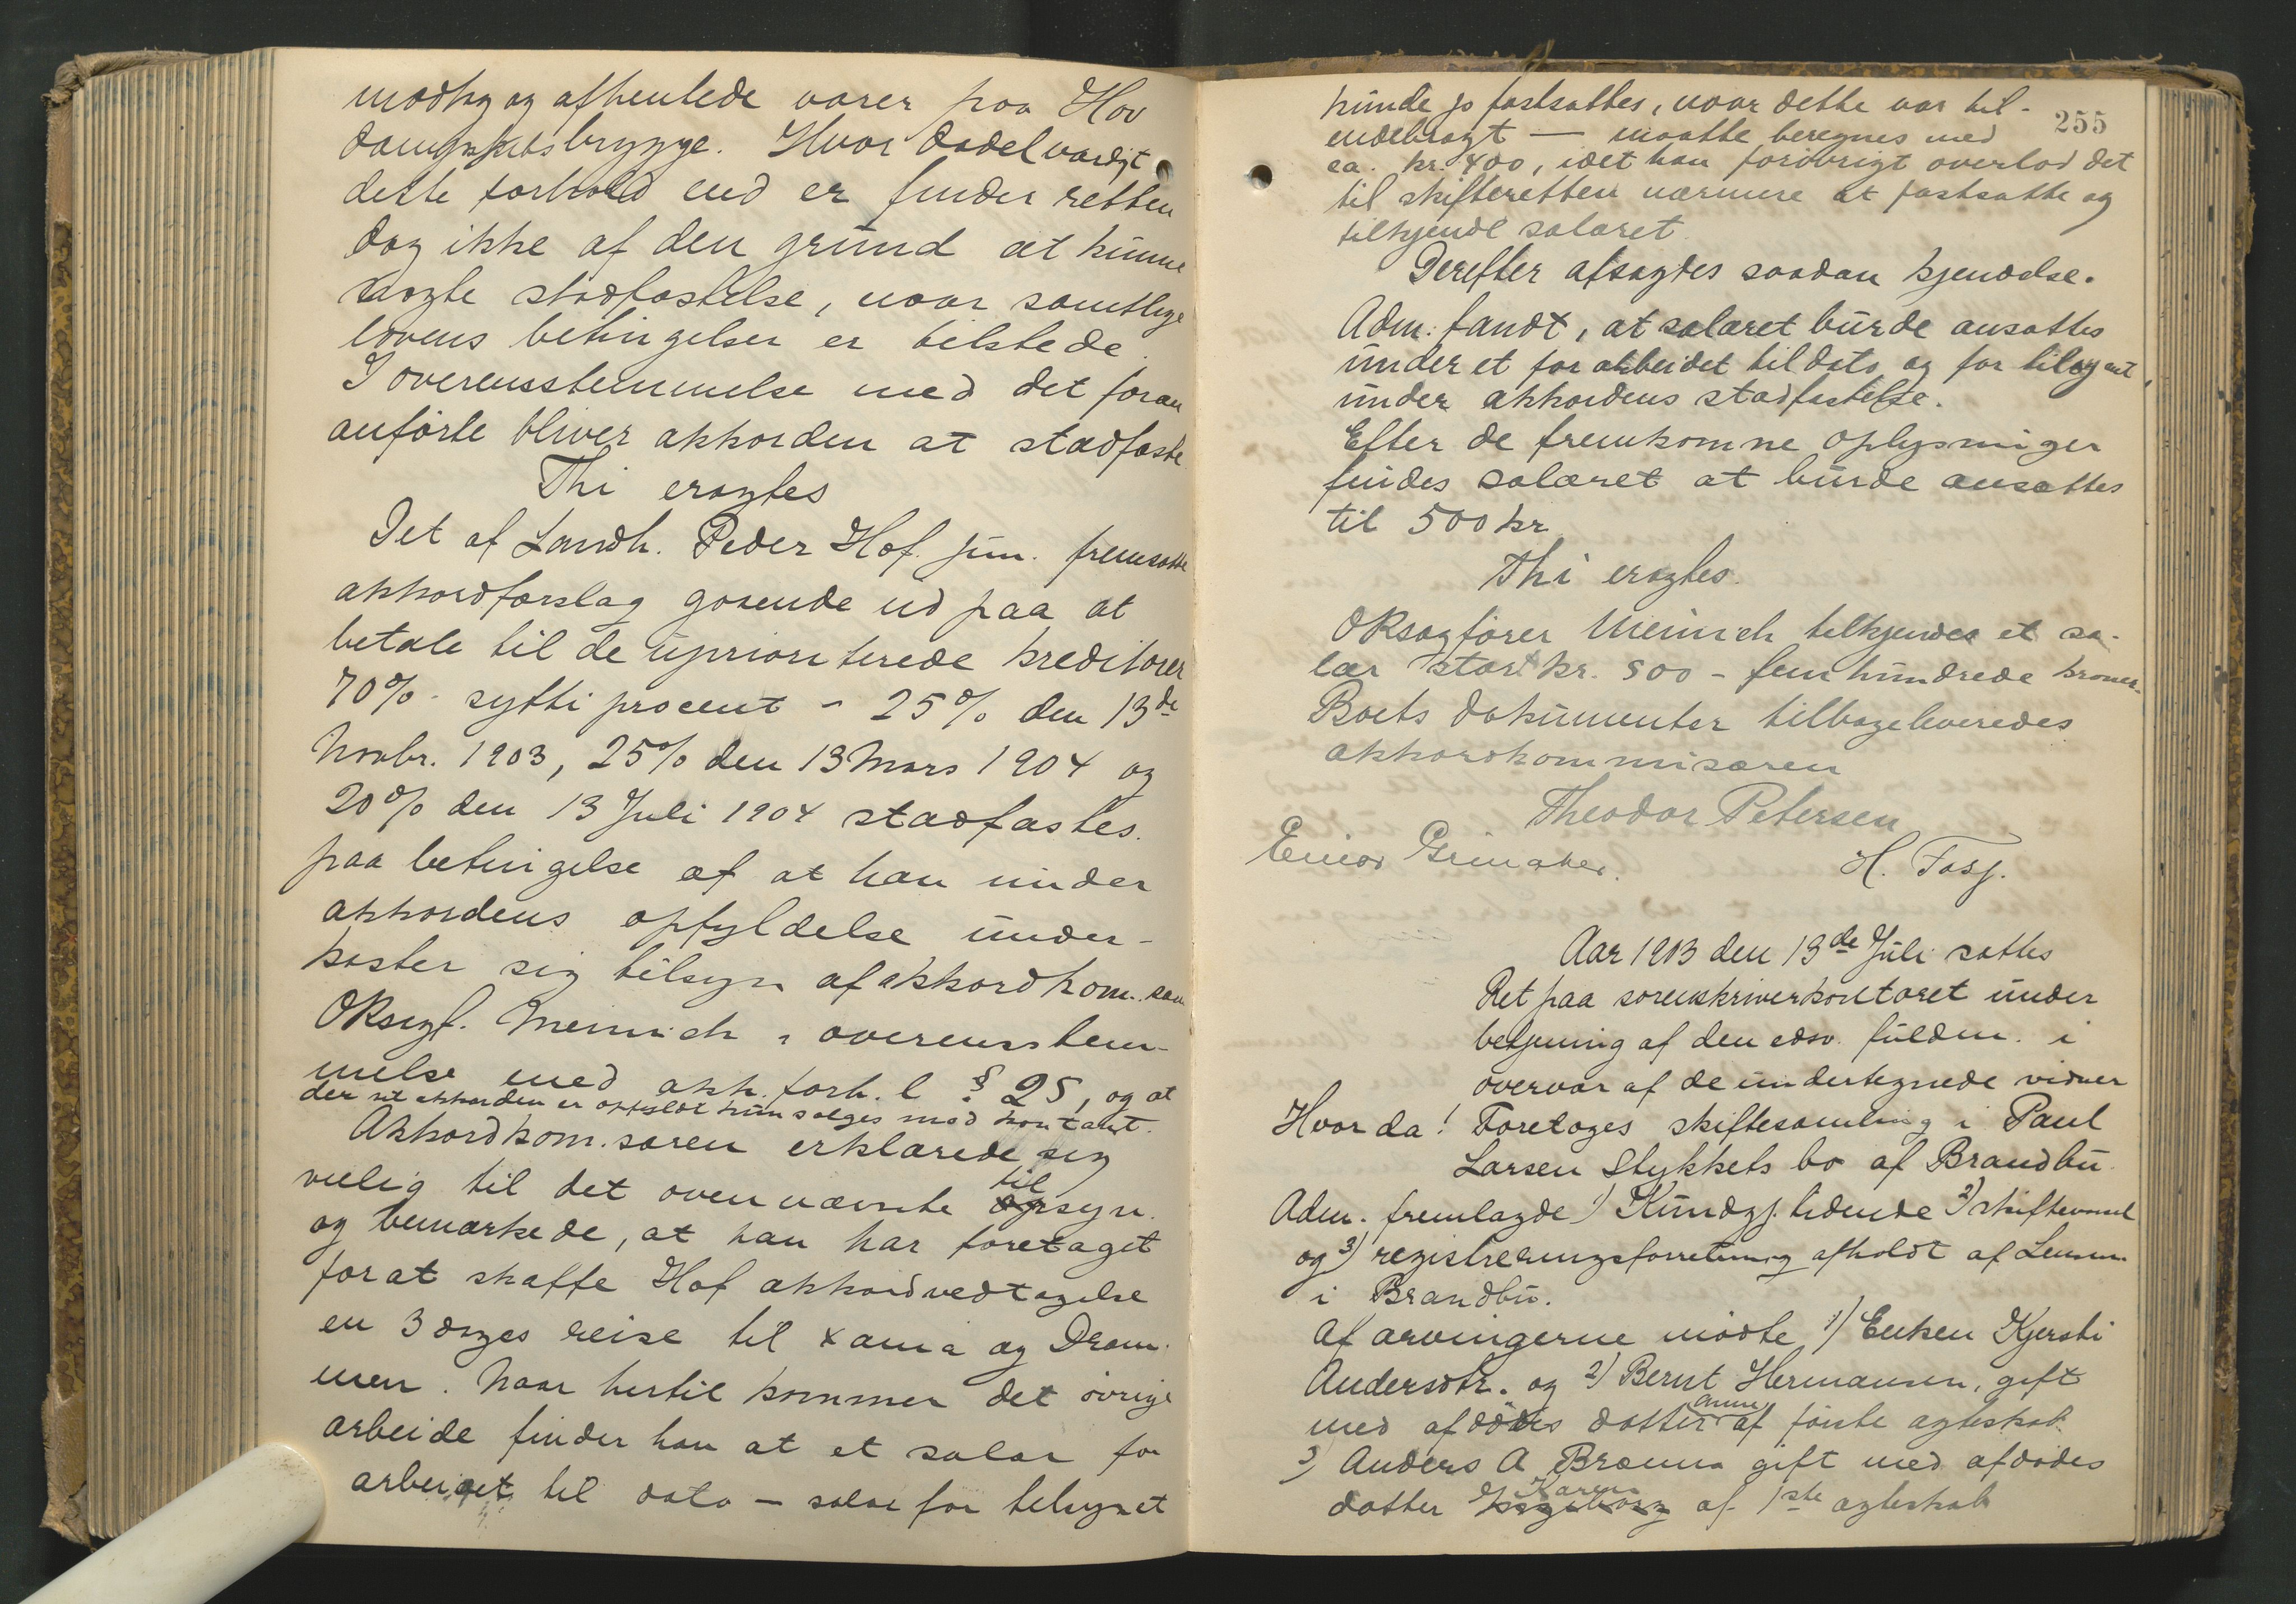 modtog og afhentede varer paa Hov
dampskibsbrygge. Hvor dadelværdigt
dette forhold end er finder retten
dog ikke af den grund at kunne
nægte stadfæstelse, naar samtlige
lovens betingelser er tilstede.
I overensstemmelse med det foran
anførte bliver akkorden at stadfæste
Thi eragtes
Det af Landh. Peder Hof jun. fremsatte
akkordforslag gaaende ud paa at
betale til de uprioriterede kreditorer
70% - sytti procent - 25% den 13de
Novbr. 1903, 25% den 13 Mars 1904 og
20% den 13 Juli 1904 stadfæstes.
paa betingelse af at han under
akkordens opfyldelse under-
kaster sig tilsyn af akkordkom.særen
ORsagf. Meinich i overensstem-
melse med akk.forh.l § 25, og at
der til akkorden er opfyldt kun sælges mod kontant.
Akkordkom.særen erklærede sig
villig til det ovennævnte tilsyn.
og bemærkede, at han har foretaget
for at skaffe Hof akkordvedtagelse
en 3 dages reise til Xania og Dram-
men. Naar hertil kommer det øvrige
arbeide finder han at et salær for
arbeidet til dato — salær for tilsynet
255
kunde jo fastsættes, naar dette var til-
endebragt — maatte beregnes med
ca. kr. 400, idet han forøvrigt overlod det
til skifteretten nærmere at fastsætte og
tilkjende salæret.
Derefter afsagdes saadan kjendelse.
Adm. fandt, at salæret burde ansættes
under et for arbeidet til dato og for tilsynet
under akkordens stadfæstelse.
Efter de fremkomne oplysninger
findes salæret at burde ansættes
til 500 kr.
Thi eragtes.
ORsagfører Meinich tilkjendes et sa-
lær stort kr. 500 - fem hundrede kroner.
Boets dokumenter tilbageleveredes
akkordkommisæren
Theodor Petersen
Einar Grinaker. H. Fosj.
Aar 1903 den 13de Juli sattes
Ret paa sorenskriverkontoret under
betjening af den edsv. fuldm. i
overvær af de undertegnede vidner
Hvorda! Foretoges skiftesamling i Paul
Larsen Stykkets bo af Brandbu.
Adm. fremlagde 1) Kundgj.tidende 2) skiftevarsel
og 3) registreringsforretning afholdt af Lensm.
i Brandbu.
Af arvingerne mødte 1) Enken Kjersti
Andersdtr. og 2) Bernt Hermansen, gift
med afdødes datter Anne af første ægteskab
3) Anders A Brænna gift med afdødes
datter Karen af 1ste ægteskab